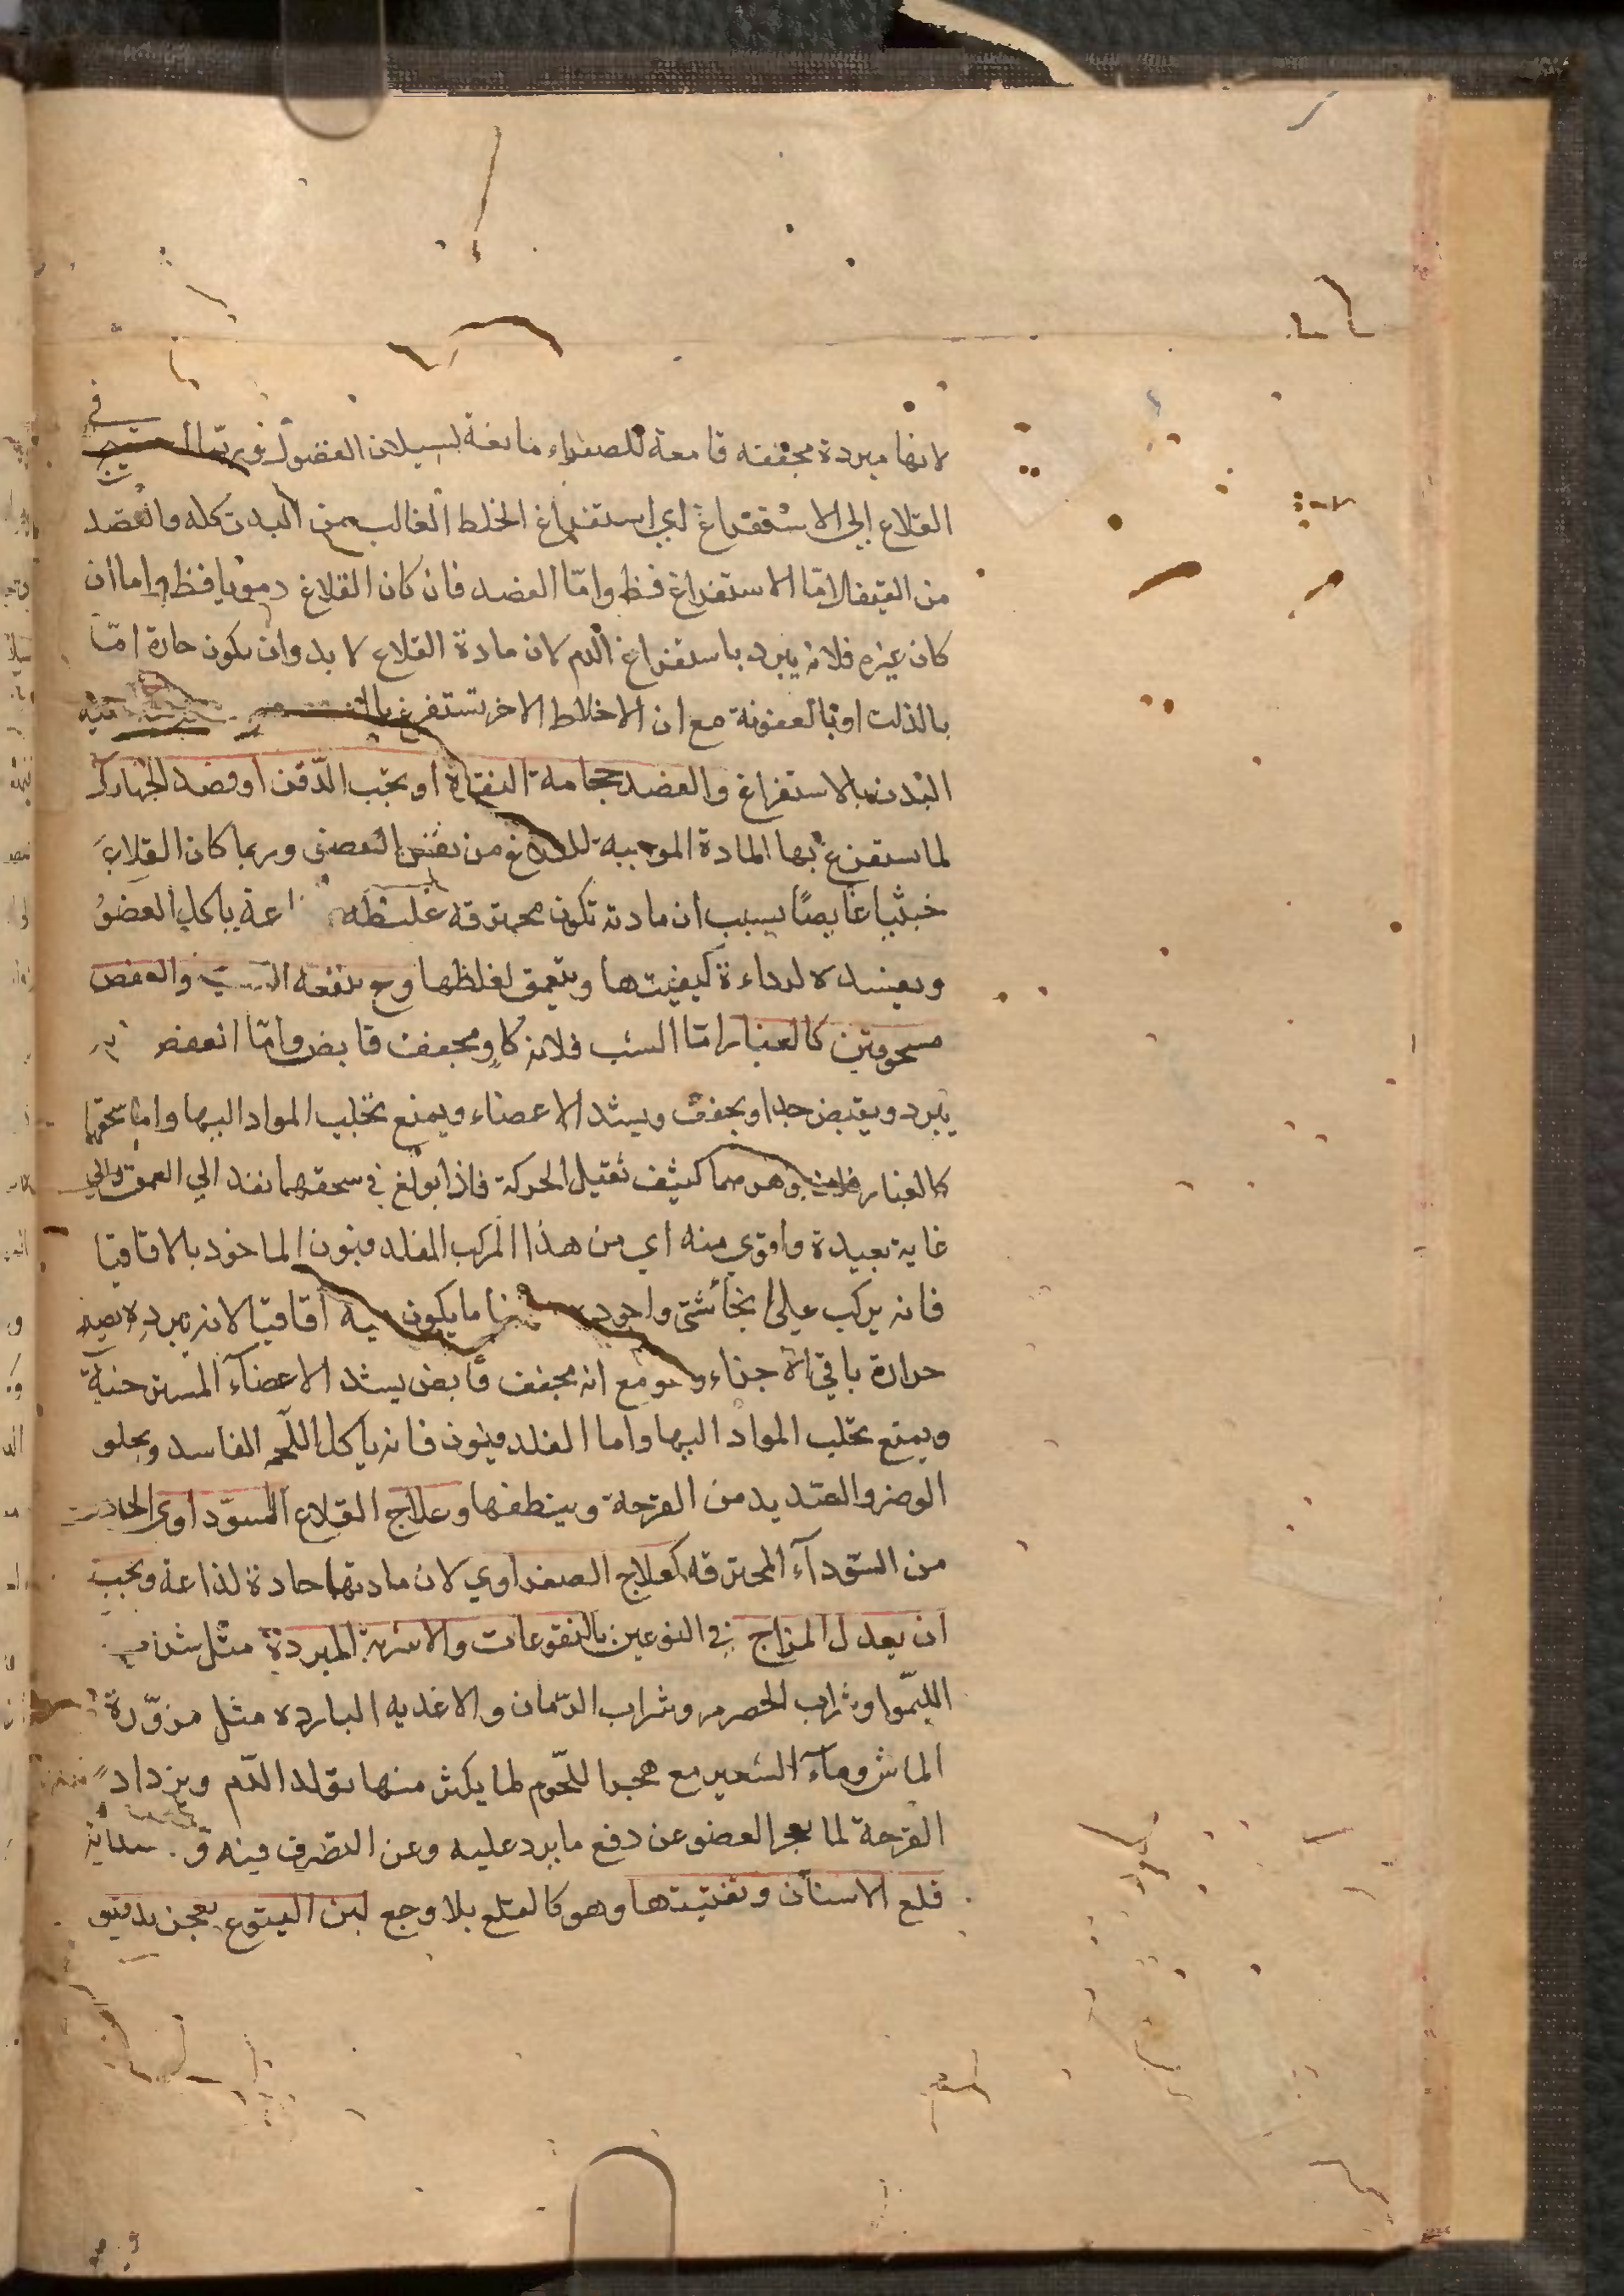 لانها مبردة مجففه قامعة للصفراء مانعة لسيلان الفضول وربما احتيج في
القلاع الى الاستفراغ اي استفراغ الخلط الغالب من البدن كله والفصد
من القيفال اما الاستفراغ فظ واما الفصد فان كان القلاع دمويا فظ واما ان
كان غيره فلانه يبرد باستفراغ الدم لان مادة القلاع لا بد وان يكون حارة امّا
بالذات او بالعفونة مع ان الاخلاط الاخر تستفرغ تنقيه
البدن بالاستفراغ والفصد حجامة النقرة او تحت الذّقن او فصد الجهارك
لما ستفرغ بها المادة الموجبة للقلاع من نفس العضو وربما كان القلاع
خبيثيا غايصًا بسبب ان مادته تكون محترقه غليظه ياكل العضوُ
ويفسده لرداءة كيفيتها ويتعمق لغلظها وح ينفعه والعفص
مسحوقين كالغبار امّا الشب فلانه كاوٍ مجفف قابض وامّا العفص
يبرد ويقبض جدا ويجفف ويشد الاعضاء ويمنع تحلب المواد اليها واما سحقهما
كالغبار وهو مما كثيف ثقيل الحركة فاذا بولغ في سحقهما نفد الي العمق والي
غاية بعيدة واقوي منه اي من هذا المركب الفلدفيون الماخوذ بالاقاقيا
فانه يركب علي انحا شتى واجود ما يكون فيه اقاقيا لانه يبرده
حرارة باقي الاجزاء وهو مع انه مجفف قابض يشد الاعضآء المسترخية
ويمنع تحلب المواد اليها واما الفلدفيون فانه ياكل اللّحم الفاسد ويجلو
الوضر والصديد من القرحة وينظفها وعلاج القلاع السّوداوى الحادث
من السّودآء المحترقه كعلاج الصفراوي لان مادتها حادة لذاعة ويجب
ان يعدل المزاج في النوعين بالنقوعات والاشربة المبردة مثل شراب
الليّموا وشراب الحصرم وشراب الرّمان والاغديه البارده مثل مزوّرة
الماش ومآء الشعير مع هجر اللّحوم لما يكثر منها تولد الدّم ويزداد
القرحة لما يعجز العضو عن دفع ما يرد عليه وعن التصرف فيه
قلع الاسنان وتفتيتها وهو كالقلع بلا وجع لبن اليتوع يعجن بدقيق